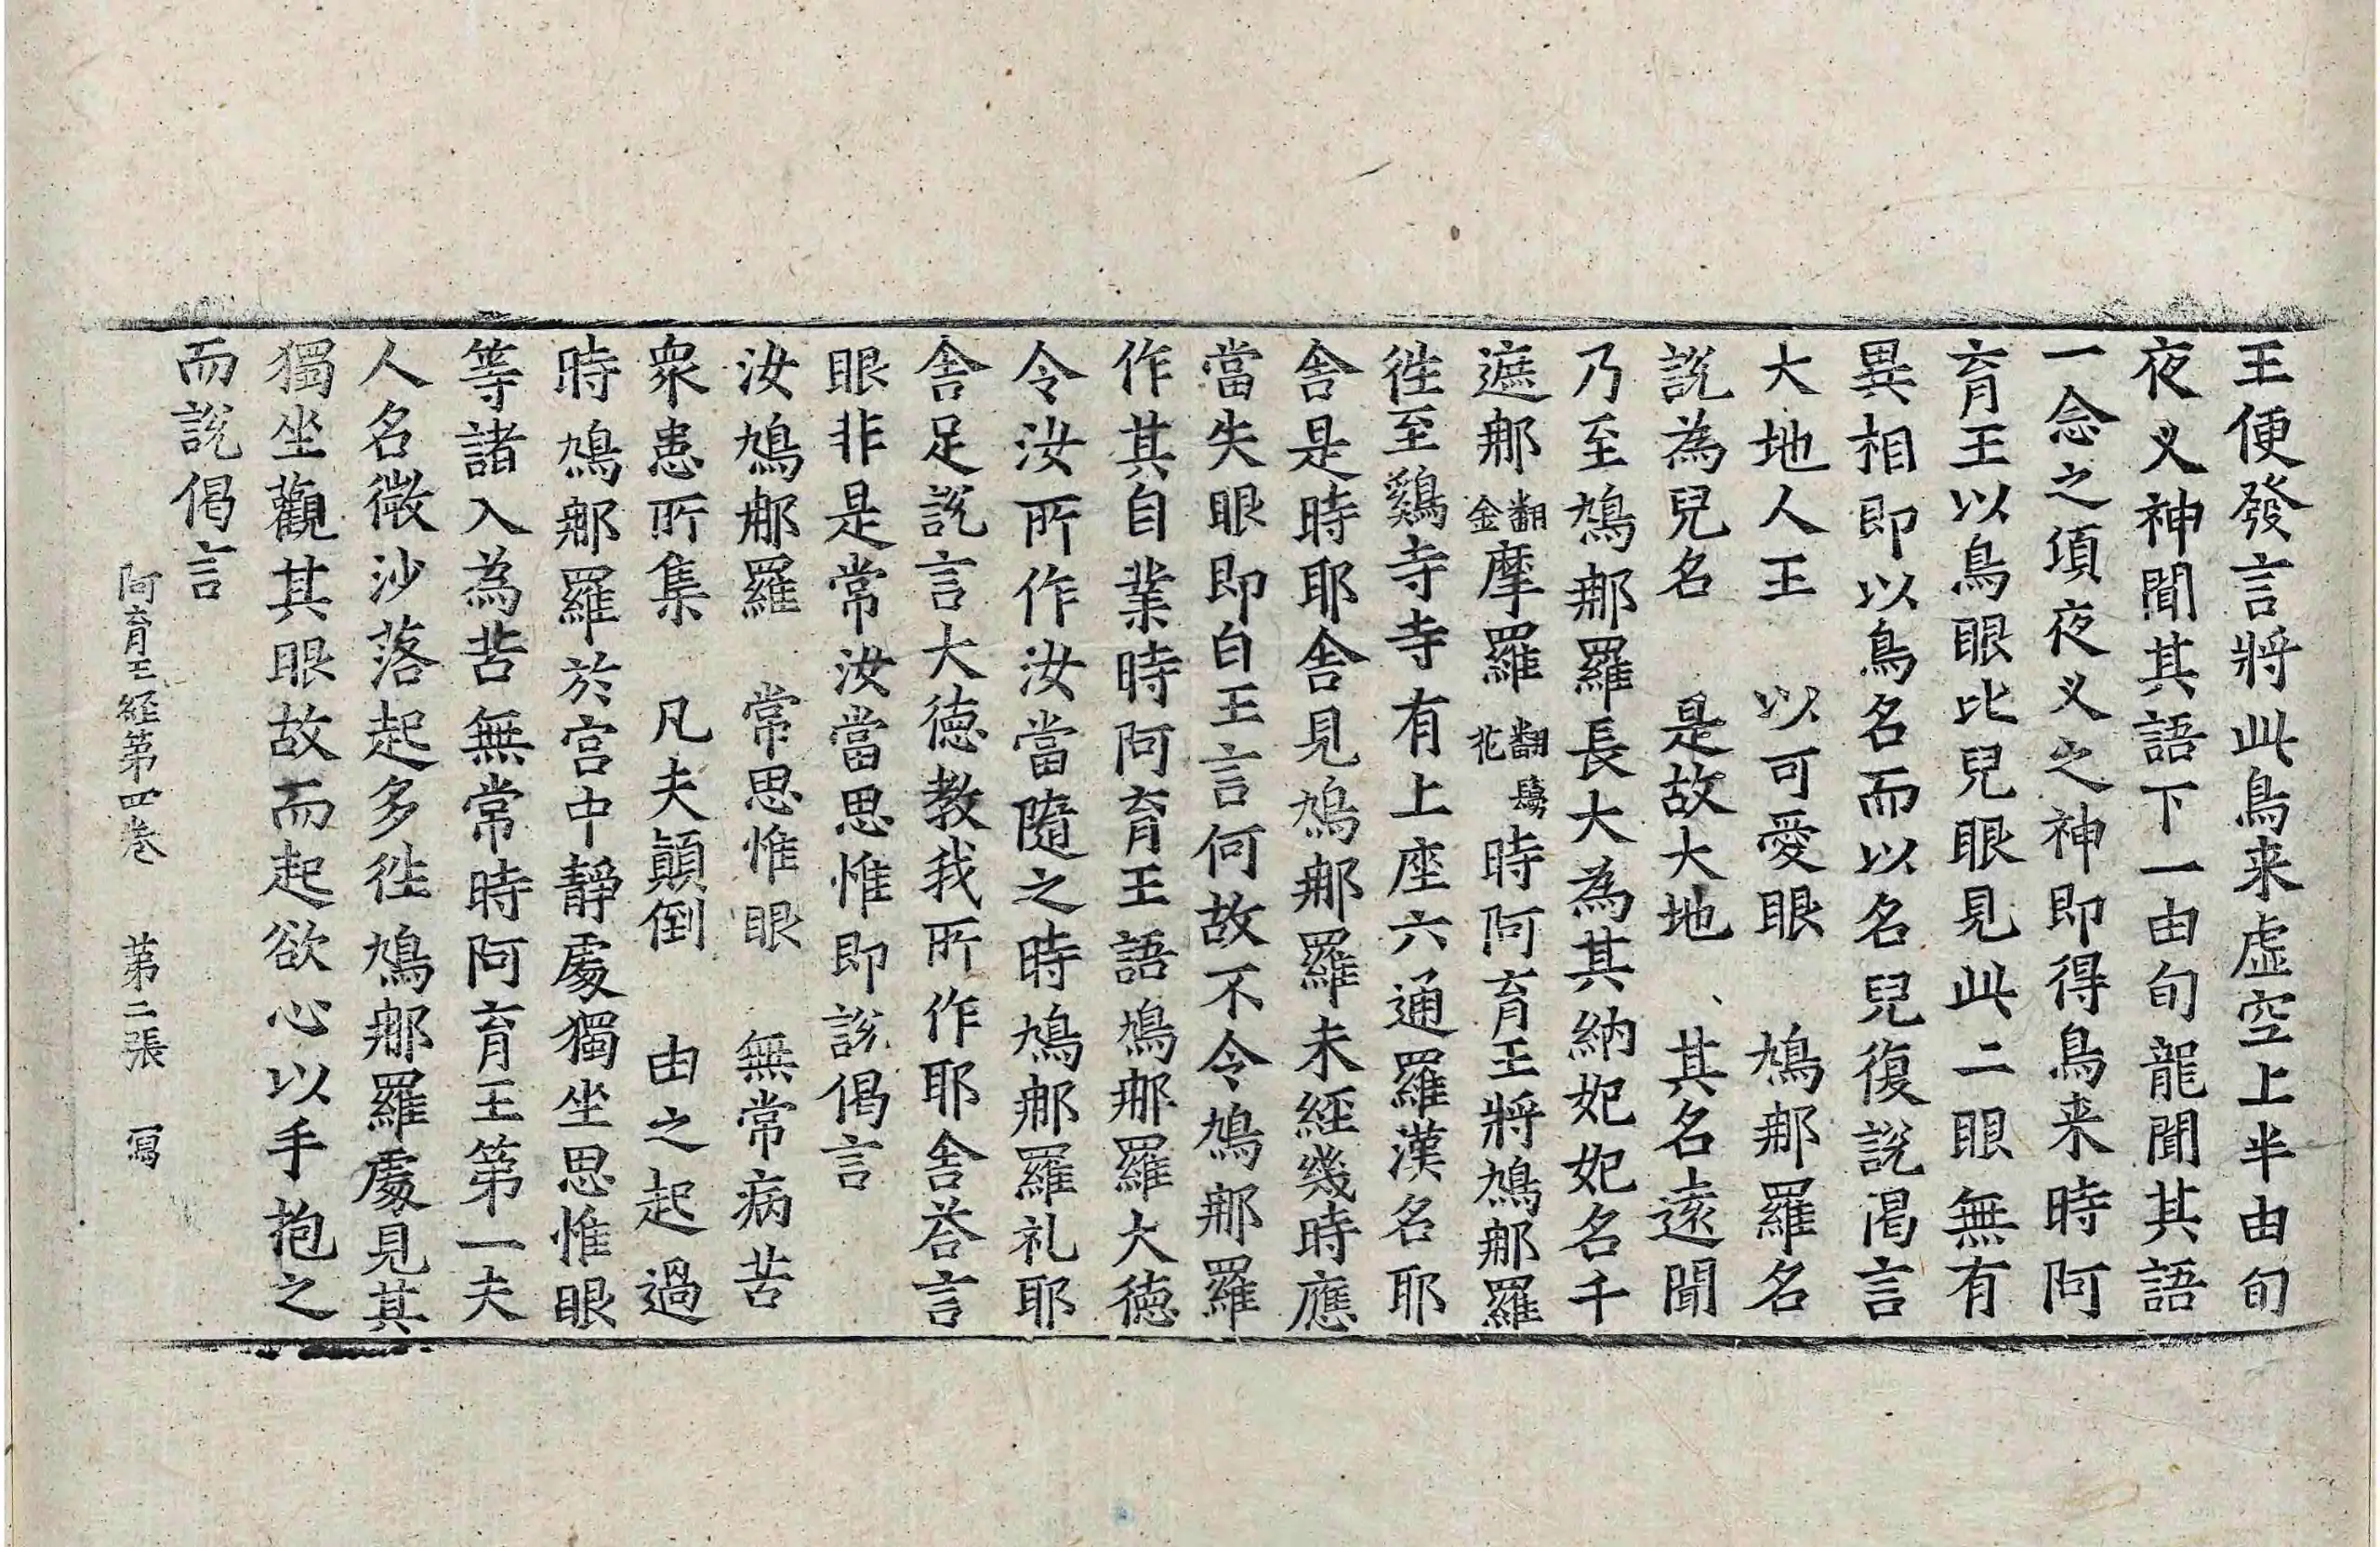 王便發言將此鳥来虛空上半由旬
夜叉神聞其語下一由旬龍聞其語
一念之頃夜叉之神即得鳥来時阿
育王以鳥眼比兒眼見此二眼無有
異相即以鳥名而以名兒復說偈言
大地人王　以可愛眼　鳩那羅名
說為兒名　是故大地　其名遠聞
乃至鳩那羅長大為其納妃妃名千
遮那翻金摩羅翻鬘花時阿育王將鳩那羅
徃至鷄寺寺有上座六通羅漢名耶
舎是時耶舎見鳩那羅未經幾時應
當失眼即白王言何故不令鳩那羅
作其自業時阿育王語鳩那羅大德
令汝所作汝當隨之時鳩那羅礼耶
舎足說言大德教我所作耶舎荅言
眼非是常汝當思惟即說偈言
汝鳩那羅　常思惟眼　無常病苦
衆患所集　凡夫顛倒　由之起過
時鳩那羅於宮中靜處獨坐思惟眼
等諸入為苦無常時阿育王第一夫
人名微沙落起多徃鳩那羅處見其
獨坐觀其眼故而起欲心以手抱之
而說偈言
阿育王経第四卷　第二張　冩